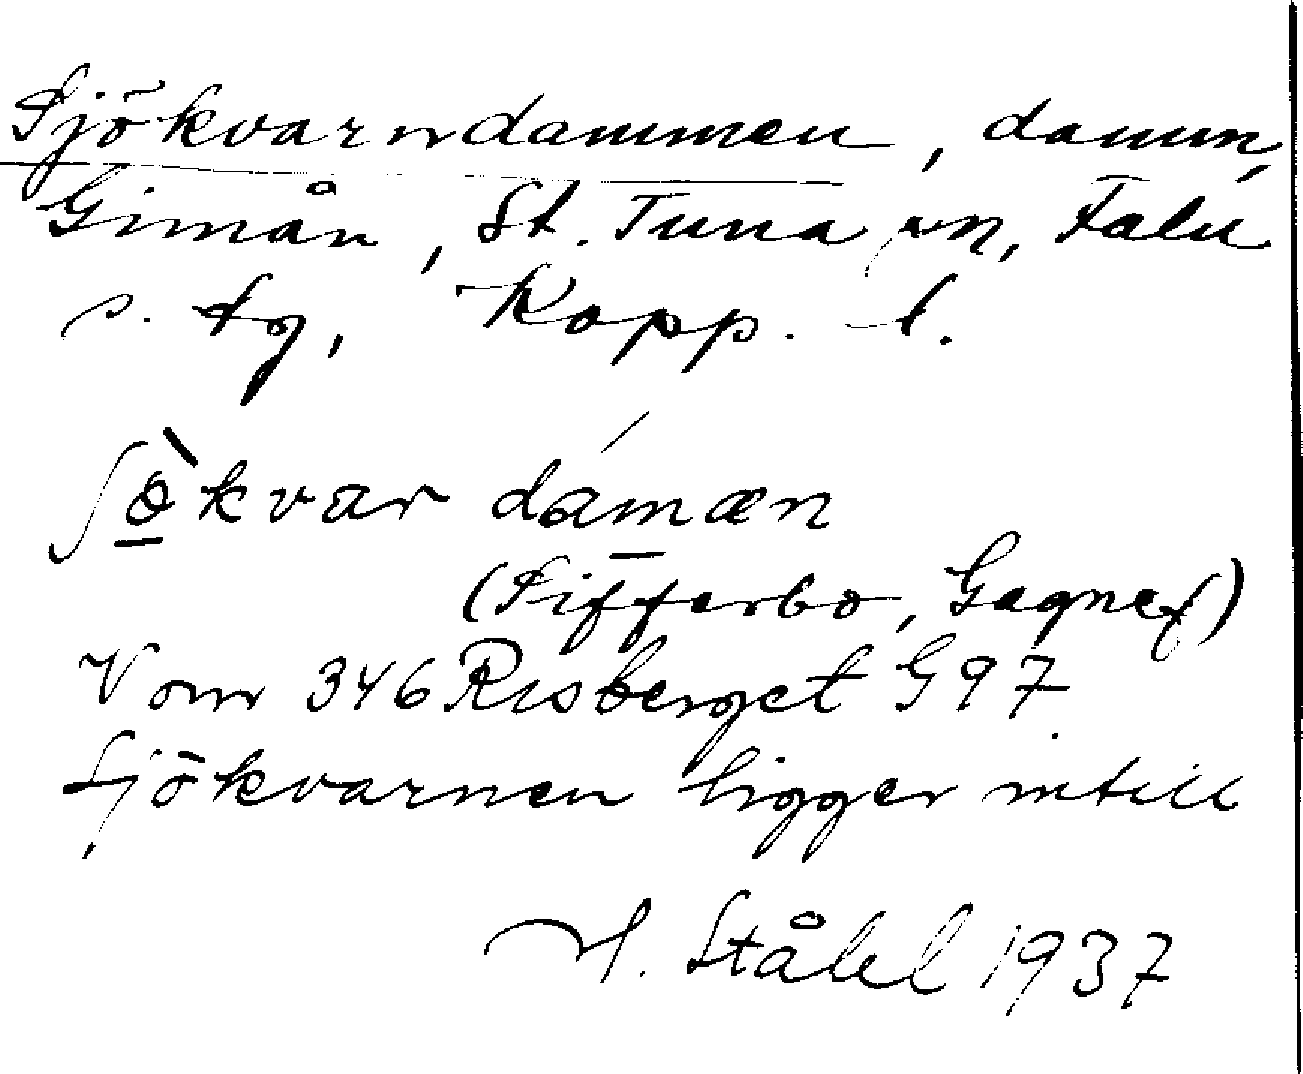 Sjökvarndammen, damm,
Gimån, St. Tuna sn, Falu
s. tg, Kopp. l.
ʃö̀kvar dámæn
(Sifferbo, Gagnef)
V om 346 Risberget G 97.
Sjökvarnen ligger intill
H. Ståhl 1937